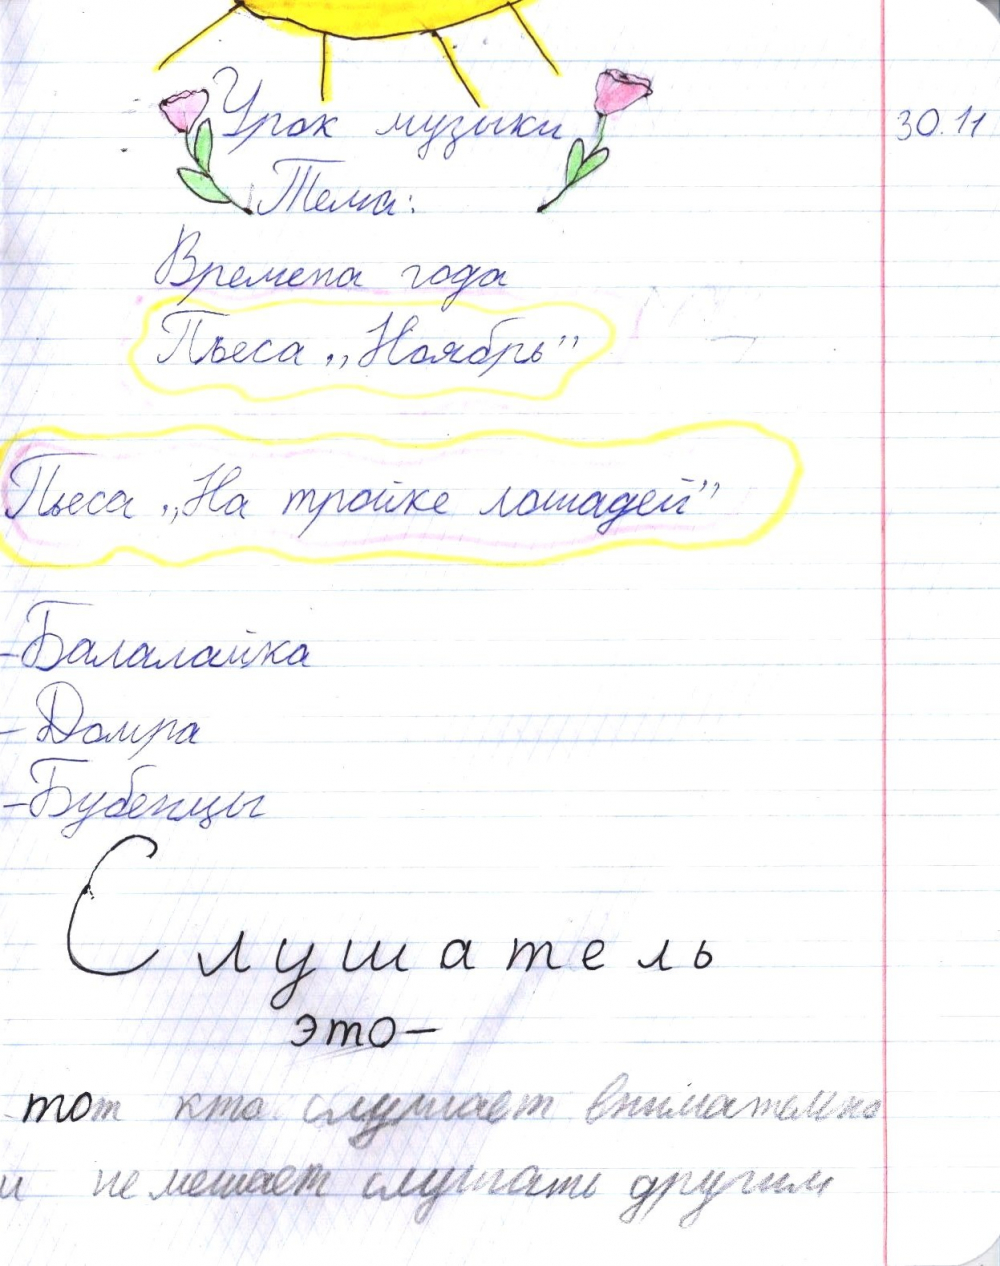 Урок музыки
30.11
Тема:
Времена года
Пьеса „Ноябрь”
Пьеса „На тройке лошадей”
-Балалайка
- Домра
-Бубенцы
Слушатель
это-
тот кто слушает внимательно
и не мешает слушать другим